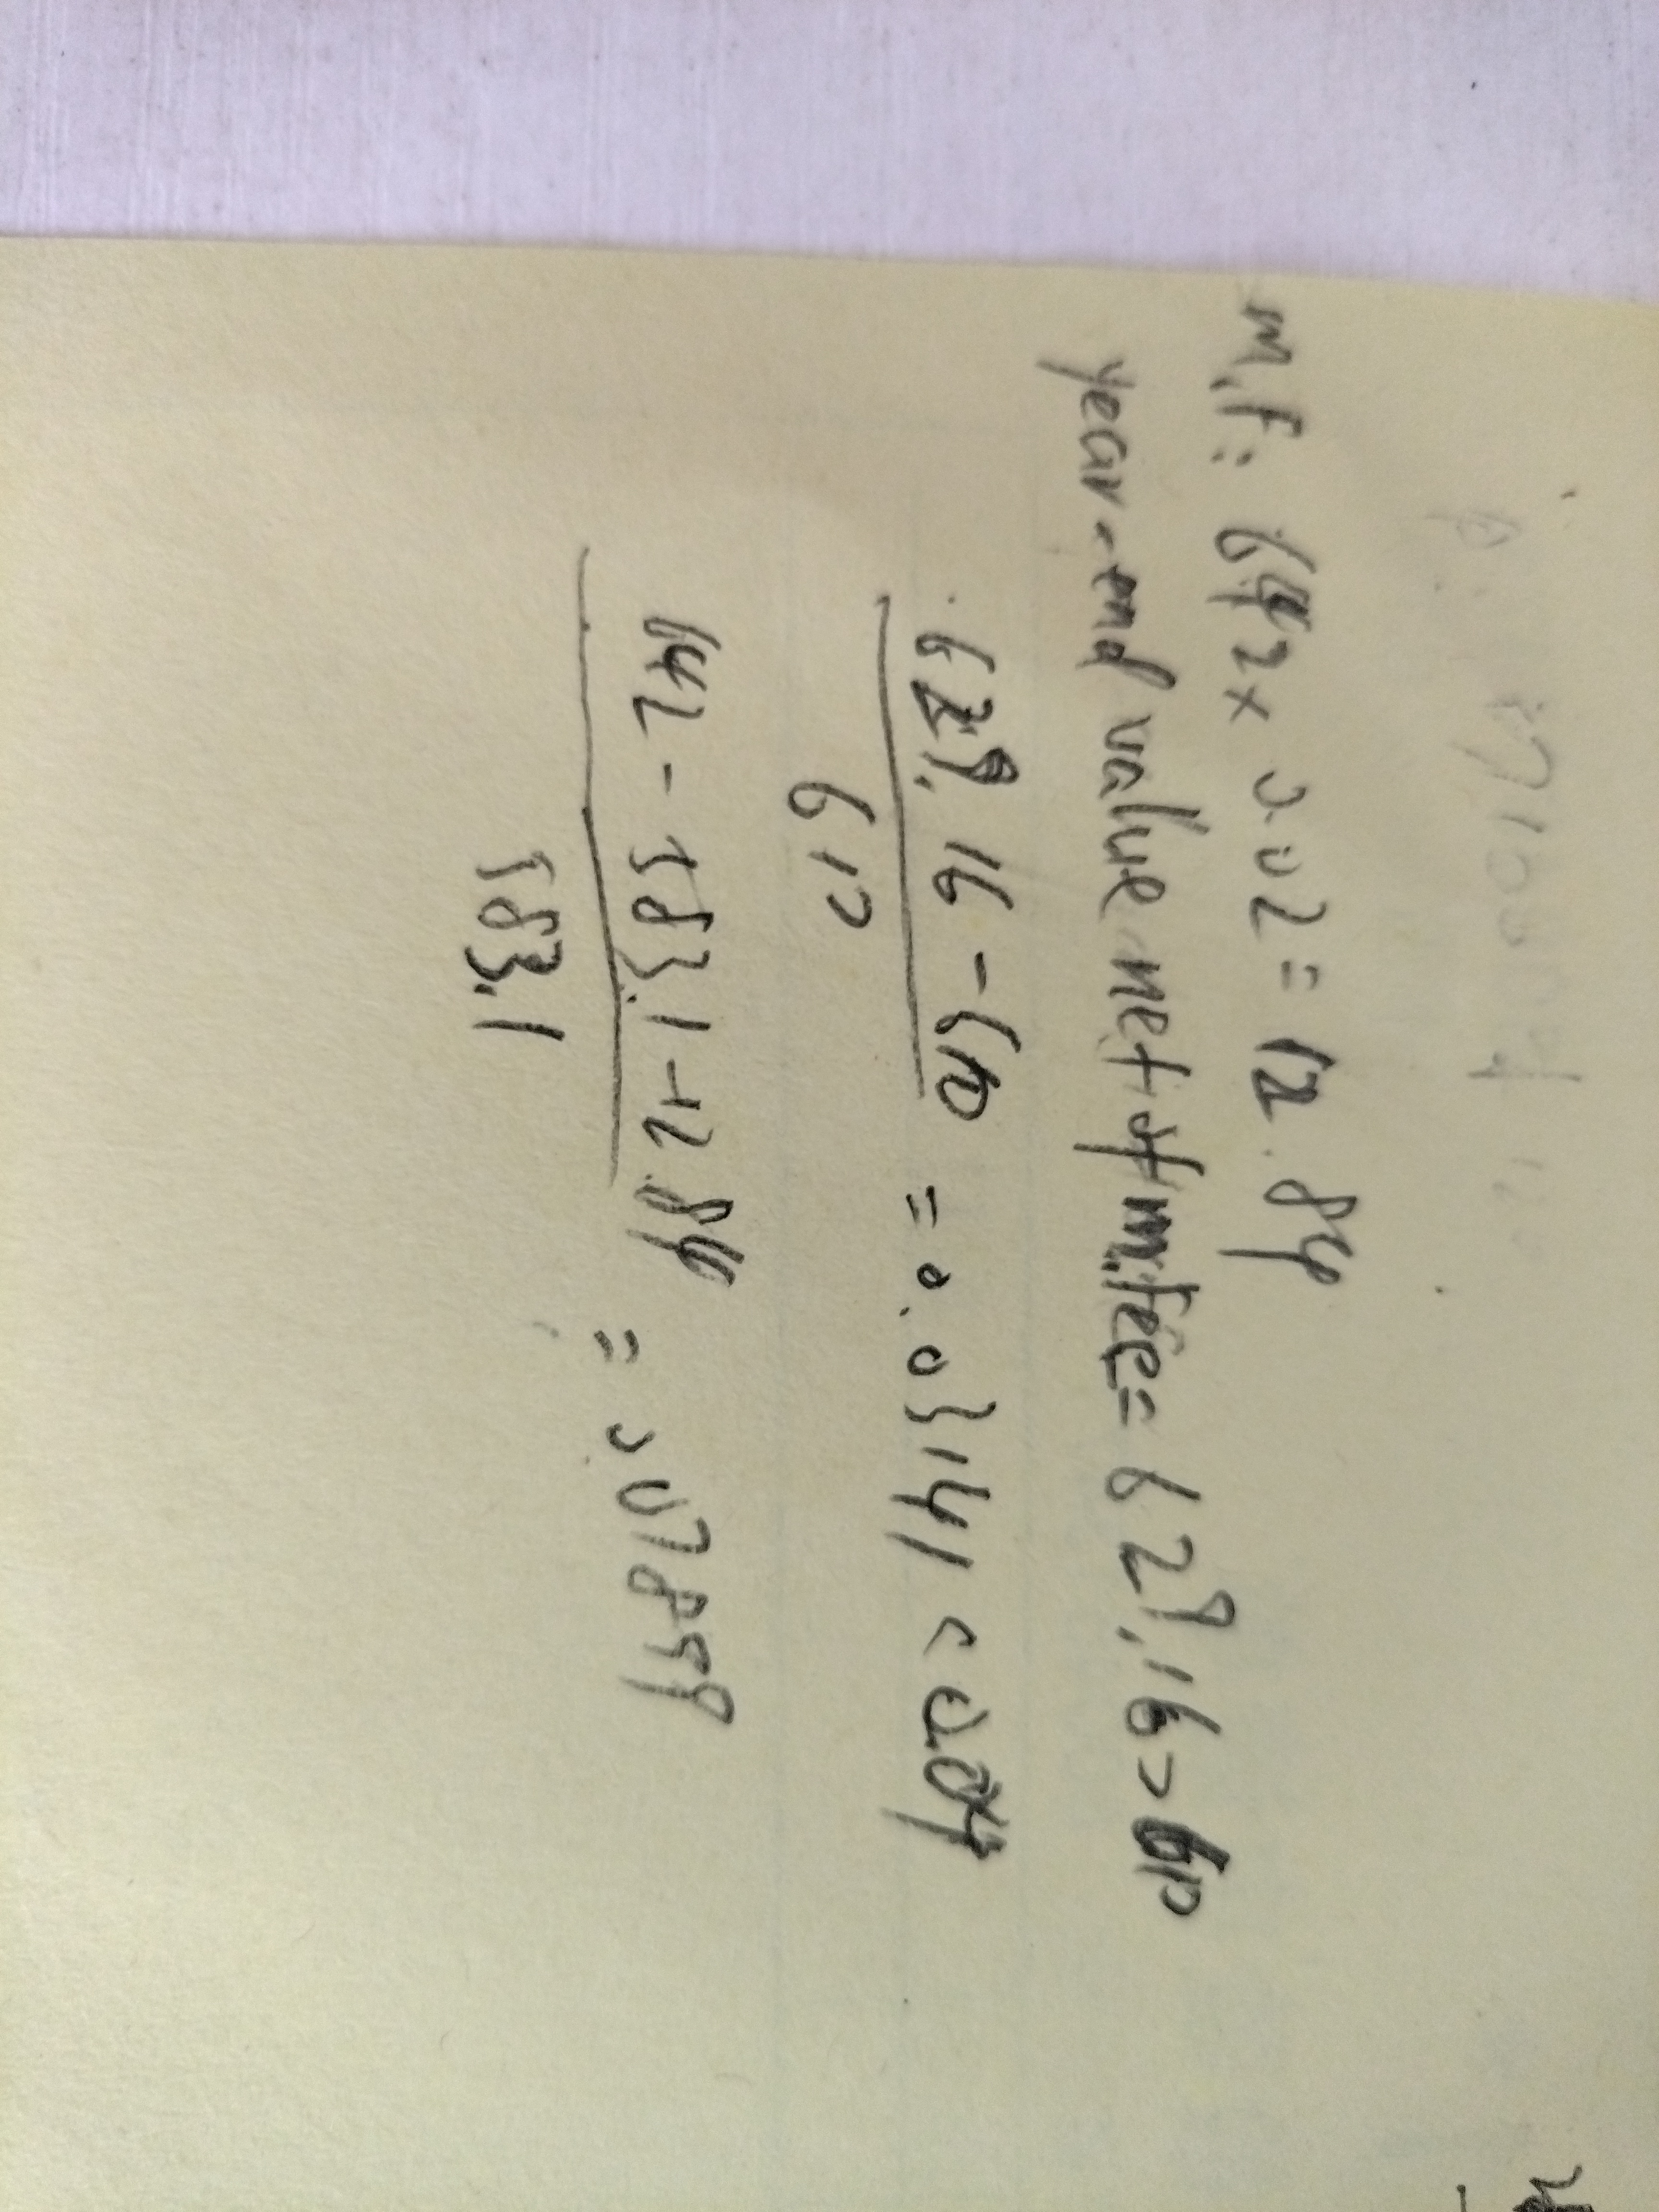 m.f: 642 x 0.02 = 12.84
year-end value net of m.fee = 629.16 > 610
629.16 - 610 = 0.03141 < 0.04
610
642 - 583.1 - 12.84 = 0.07899
583.1